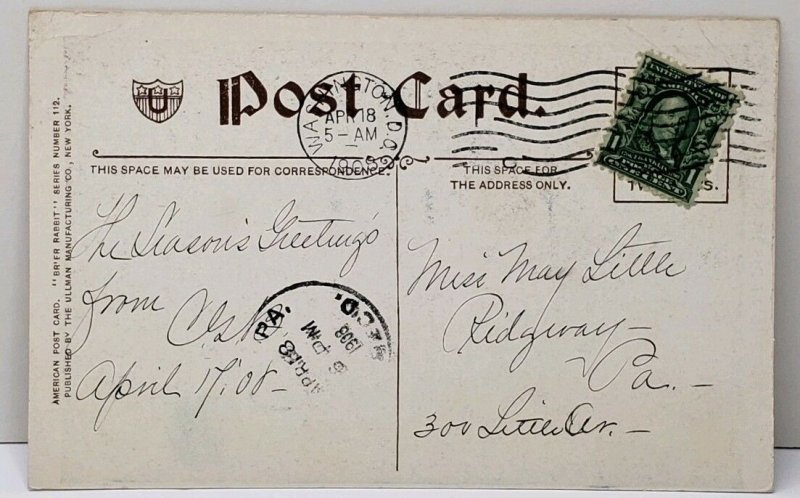 AMERICAN POST CARD. "BR'ER RABBIT" SERIES NUMBER 112.
PUBLISHED BY THE ULLMAN MANUFACTURING CO., NEW YORK.
U
Post Card.
WASHINGTON, D.C.
APR 18
5-AM
1908
THIS SPACE MAY BE USED FOR CORRESPONDENCE.
THIS SPACE FOR
THE ADDRESS ONLY.
The Season's Greetings
from
April 17, '08-
REC'D.
1908
PM
PA.
Miss May Little
Ridgway-
Pa.-
300 Little Av.-